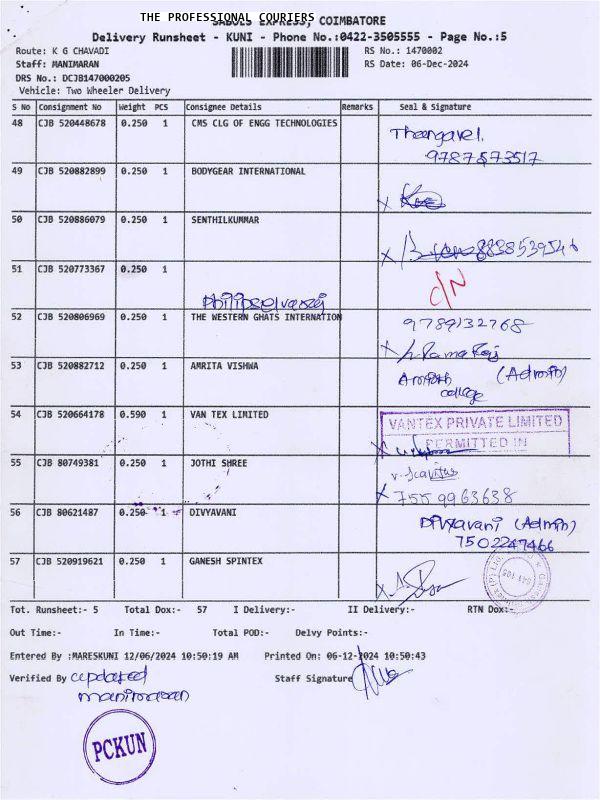 THE PROFESSIONAL COURIERS
SADULS EXPRESS, COIMBATORE
Delivery Runsheet - KUNI - Phone No.:0422-3505555 - Page No.:5
Route: K G CHAVADI
RS No.: 1470002
Staff: MANIMARAN
RS Date: 06-Dec-2024
DRS No.: DCJB147000205
Vehicle: Two Wheeler Delivery
S No Consignment No Weight PCS Consignee Details Remarks Seal & Signature
48 CJB 520448678 0.250 1 CMS CLG OF ENGG TECHNOLOGIES
Thangavel.
9787573517
49 CJB 520882899 0.250 1 BODYGEAR INTERNATIONAL
50 CJB 520886079 0.250 1 SENTHILKUMMAR
51 CJB 520773367 0.250 1
Philipselvaraj
C/N
52 CJB 520806969 0.250 1 THE WESTERN GHATS INTERNATION
9789132768
53 CJB 520882712 0.250 1 AMRITA VISHWA
(Admin)
college
54 CJB 520664178 0.590 1 VAN TEX LIMITED
VANTEX PRIVATE LIMITED
PERMITTED IN
55 CJB 80749381 0.250 1 JOTHI SHREE
7559963638
56 CJB 80621487 0.250 1 DIVYAVANI
Divyavani (Admin)
7502247466
57 CJB 520919621 0.250 1 GANESH SPINTEX
Tot. Runsheet:- 5 Total Dox:- 57 I Delivery:- II Delivery:- RTN Dox:-
Out Time:- In Time:- Total POD:- Delvy Points:-
Entered By :MARESKUNI 12/06/2024 10:50:19 AM Printed On: 06-12-2024 10:50:43
Verified By updated
Staff Signature
manimaran
PCKUN